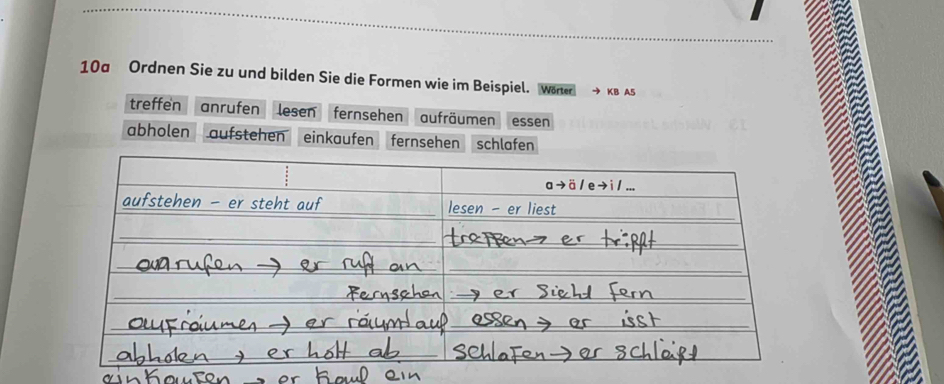 10a Ordnen Sie zu und bilden Sie die Formen wie im Beispiel. Wörter → KB A5
treffen anrufen lesen fernsehen aufräumen essen
abholen aufstehen einkaufen fernsehen schlafen
a→ä / e→i / ...
aufstehen - er steht auf lesen - er liest
treffen → er trifft
anrufen → er ruft an
Fernsehen → er sieht Fern
aufräumen → er räumt auf essen → er isst
abholen → er holt ab schlafen → er schläft
einkaufen → er kauf ein